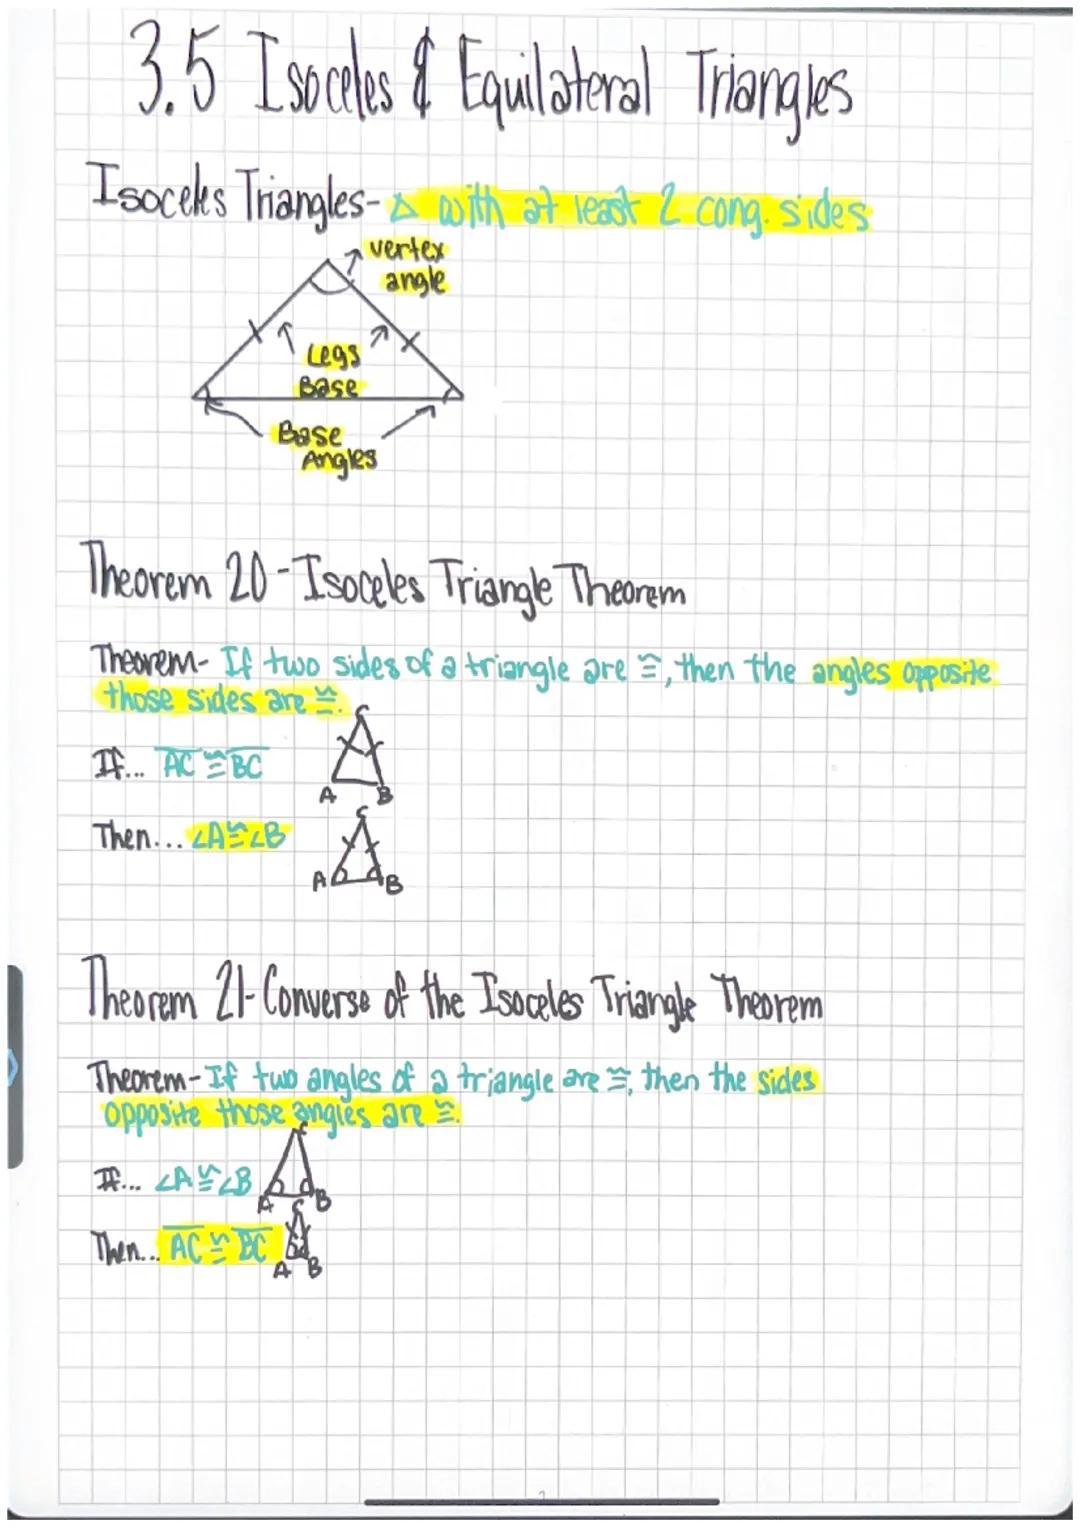 3.5 Isoceles & Equilateral Triangles
Isoceles Triangles- △ with at least 2 cong. sides
vertex
angle
Legs
Base
Base
Angles
Theorem 20 - Isoceles Triangle Theorem
Theorem- If two sides of a triangle are ≅, then the angles opposite
those sides are ≅.
C
If... AC ≅ BC
A B
C
Then... ∠A≅∠B
A B
Theorem 21- Converse of the Isoceles Triangle Theorem
Theorem- If two angles of a triangle are ≅, then the sides
opposite those angles are ≅.
C
If... ∠A≅∠B
A B
C
Then... AC ≅ BC
A B